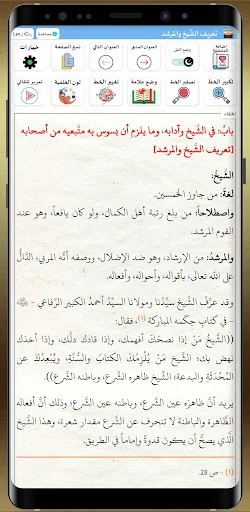 تعريف الشّيخ والمرشد
مساعدة
رجوع
إضافة للمفضلة
وضع الليل
العنوان السابق
العنوان التالي
نسخ الصفحة
خيارات
تكبير الخط
تصغير الخط
وضع علامة
تغيير الخط
لون الخلفية
تمرير تلقائي
إخفاء
بابٌ: في الشَّيخ وآدابه، وما يلزم أن يسوس به متَّبعيه من أصحابه
[تعريف الشَّيخ والمرشد]
الشَّيخُ:
لغةً: من جاوز الخمسين.
واصطلاحاً: من بلغ رتبة أهل الكمال، ولو كان يافعاً، وهو عند
القوم المرشد.
والمرشد: من الإرشاد، وهو ضد الإضلال، ووصفه أنَّه المربي، الدَّالُّ
على الله تعالى بأقواله، وأحواله، وأفعاله.
وقد عرَّف الشَّيخَ سيِّدُنا ومولانا السيِّدُ أحمدُ الكبير الرِّفاعي
- في كتاب حِكَمه المباركة (1)، فقال:
((الشَّيخُ مَنْ إذا نصحَكَ أفهمك، وإذا قادَك دلَّك، وإذا أخذك
نهض بك؛ الشَّيخُ مَنْ يُلْزِمُكَ الكتابَ والسُّنَّةَ، ويُبْعِدُكَ عن
المُحْدَثَةِ والبدعة؛ الشَّيخُ ظاهره الشَّرع، وباطنه الشَّرع)).
أقول: ظاهره عين الشَّرع، وباطنه عين الشَّرع؛ وذلك أنَّ أفعاله
الظَّاهرة والباطنة لا تنحرف عن الشَّرع مقدار شعرة، وهذا الشَّيخ
الَّذي يصحُّ أن يكون قدوةً وإماماً في الطريق.
(1) - ص 28.